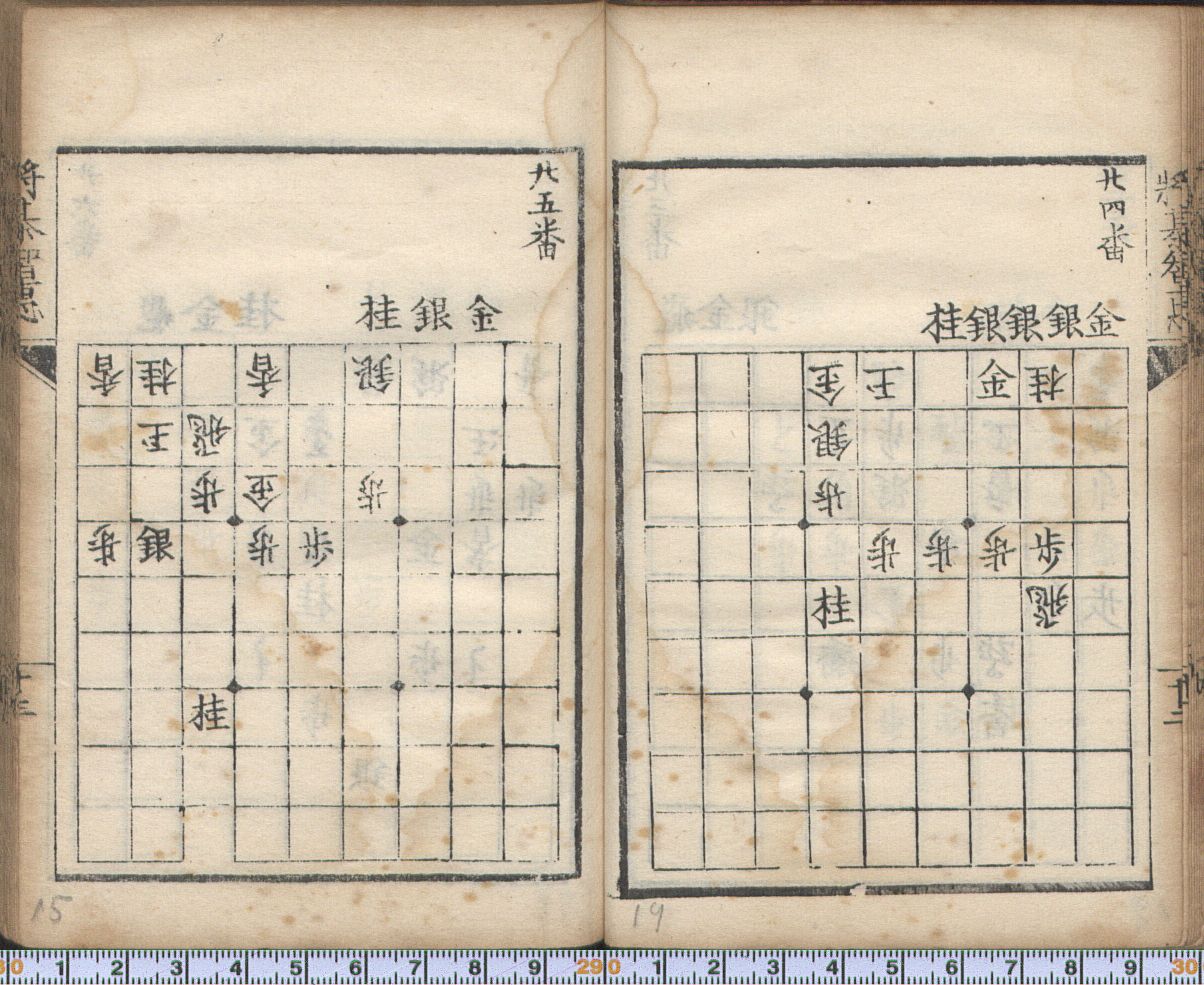 廿四番
金銀銀銀桂
桂金王金
銀
歩
歩歩歩歩
飛桂
廿五番
金銀桂
銀香桂香
飛王
歩金歩
歩歩銀歩
桂
15
30 1 2 3 4 5 6 7 8 9 290 1 2 3 4 5 6 7 8 9 30